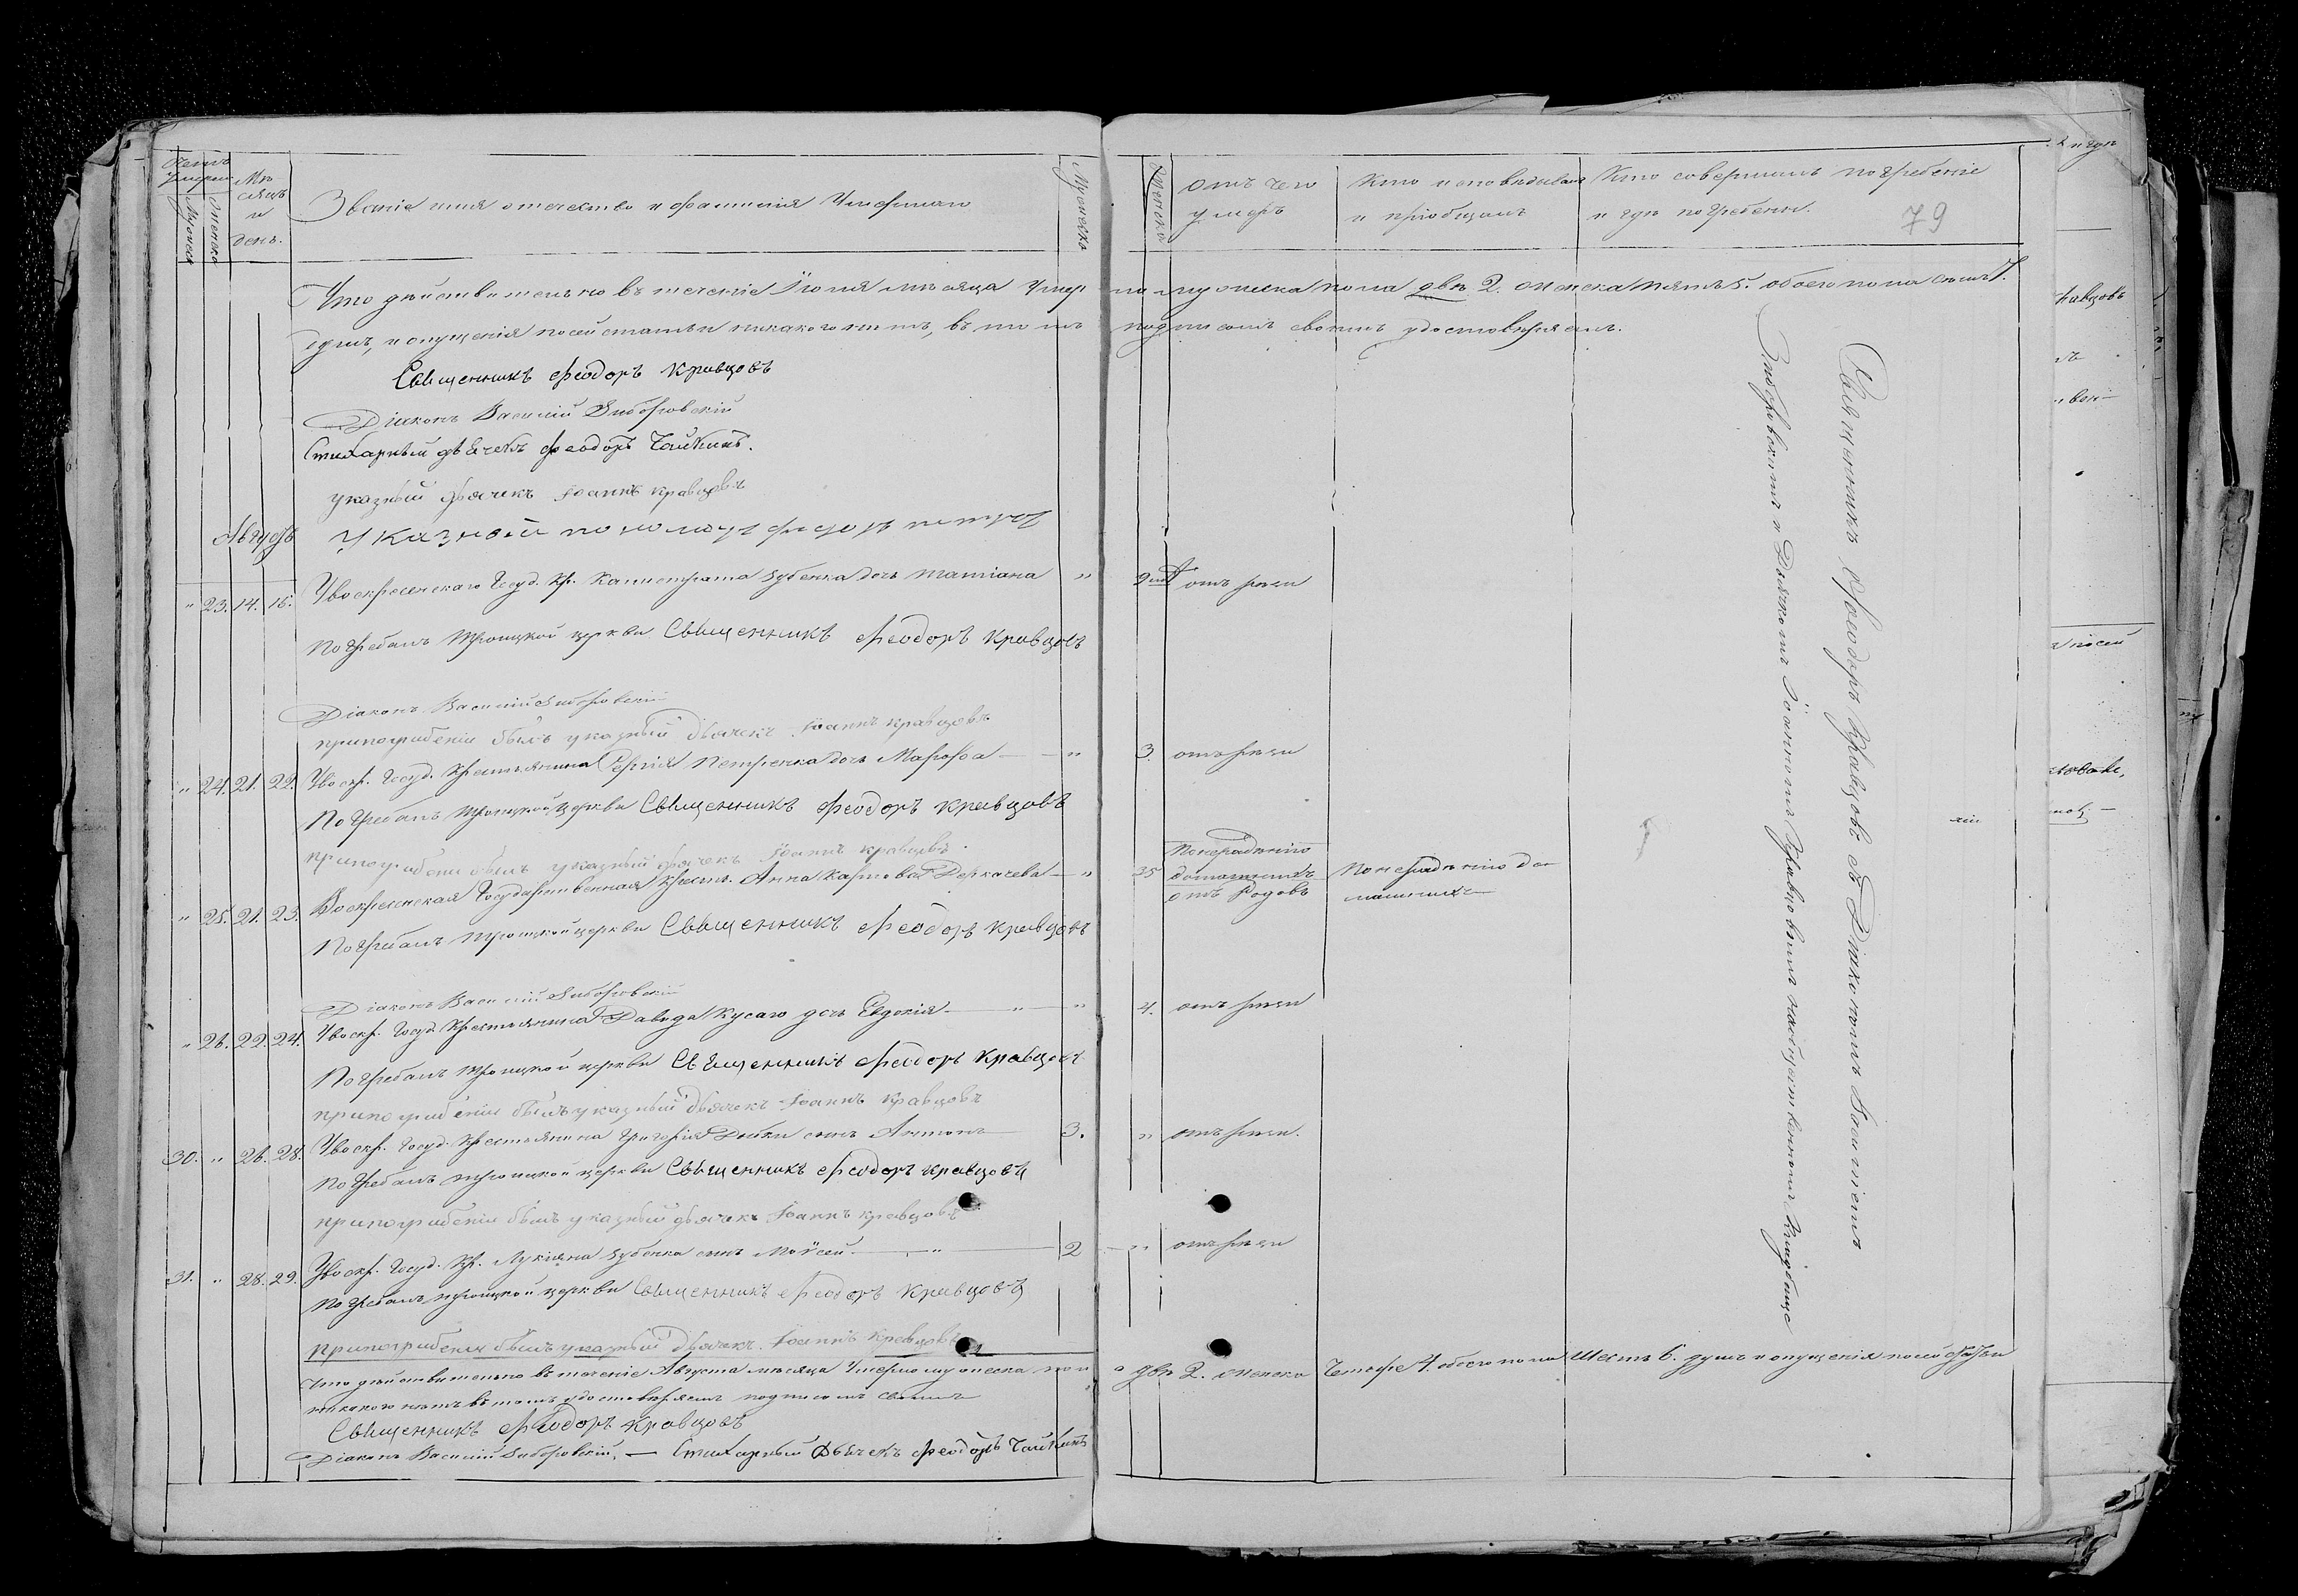 Счетъ умерш.
Мужеска
Женска
Мѣсяцъ и день.
Званіе имя отечество и фамилія Умершаго
Мужеска
Женска
отъ чего умеръ
Кто исповѣдывалъ и пріобщалъ
Кто совершалъ погребеніе и гдѣ погребены.
79
Что дѣйствительно въ теченіе Іюля мѣсяца Умерло мужеска пола двѣ 2. женска пять 5. обоего пола семь 7.
душъ, и опущенія посей статьи никакого нѣтъ, въ томъ подписомъ своимъ удостовѣряемъ.
Священникъ Феодоръ Кравцовъ
Діаконъ Василій Зиборовскій
Стихарный дьячекъ Феодоръ Чайкинъ.
указный дьячекъ Іоаннъ Кравцовъ
Августъ
Указной пономарь Федоръ Петров
" 23. 14. 16. Увоскресенскаго Госуд. Кр. Калистрата Зубенка дочь Татіана " 2 отъ рѣзи
Погребалъ Троицкой церкви Священникъ Феодоръ Кравцовъ
Діаконъ Василій Зиборовскій
припогрибеніи былъ указный дьячекъ Іоаннъ Кравцовъ
" 24. 21. 22. Увоскр. Госуд. Крестьянина Сергія Петренка дочь Марфа " 3. отъ рѣзи
Погребалъ Троицкой церкви Священникъ Феодоръ Кравцовъ
припогрибеніи былъ указный дьячекъ Іоаннъ Кравцовъ.
" 25. 21. 23. Воскресенская Государственная Крест. Анна Карпова Деркачева " 35 Понерадѣнію домашнихъ отъ Родовъ Понерадѣнію домашнихъ
Погребалъ Троицкой церкви Священникъ Феодоръ Кравцовъ
Діаконъ Василій Зиборовскій
" 26. 22. 24. Увоскр. Госуд. Крестьянина Давида Кусаго дочь Евдокія " 4. отъ рѣзи
Погребалъ Троицкой церкви Священникъ Феодоръ Кравцовъ
припогрибеніи былъ указный дьячекъ Іоаннъ Кравцовъ
30. " 26. 28. Увоскр. Госуд. Крестьянина Григорія Дейки сынъ Антонъ 3. " отъ рѣзи.
Погребалъ Троицкой церкви Священникъ Феодоръ Кравцовъ
припогрибеніи былъ указный дьячекъ Іоаннъ Кравцовъ
31. " 28. 29. Увоскр. Госуд. Кр. Лукіяна Зубенка сынъ Моѵсей " 2 " отъ рѣзи
Погребалъ Троицкой церкви Священникъ Феодоръ Кравцовъ
припогрибеніи былъ указный дьячекъ Іоаннъ Кравцовъ
Что дѣйствительно въ теченіе Августа мѣсяца Умерло мужеска пола двѣ 2. женска Четыре 4. обоего пола Шесть 6. душъ и опущенія посей статьи
никакого нѣтъ въ томъ удостовѣряемъ подписомъ своимъ
Священникъ Феодоръ Кравцовъ
Діаконъ Василій Зиборовскій. — Стихарный Дьячекъ Феодоръ Чайкинъ
Священникъ Феодоръ Кравцовъ съ Діакономъ Василіемъ
Зиборовскимъ и Дьячкомъ Іоанномъ Кравцовымъ на общественномъ Кладбище